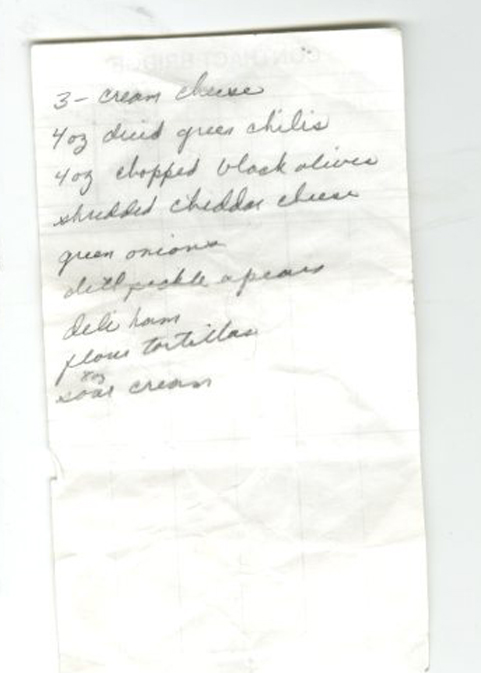 3- cream cheese
4oz diced green chilis
4oz chopped black olives
shredded cheddar cheese
green onions
dill pickle spears
deli ham
flour tortillas
8oz
sour cream